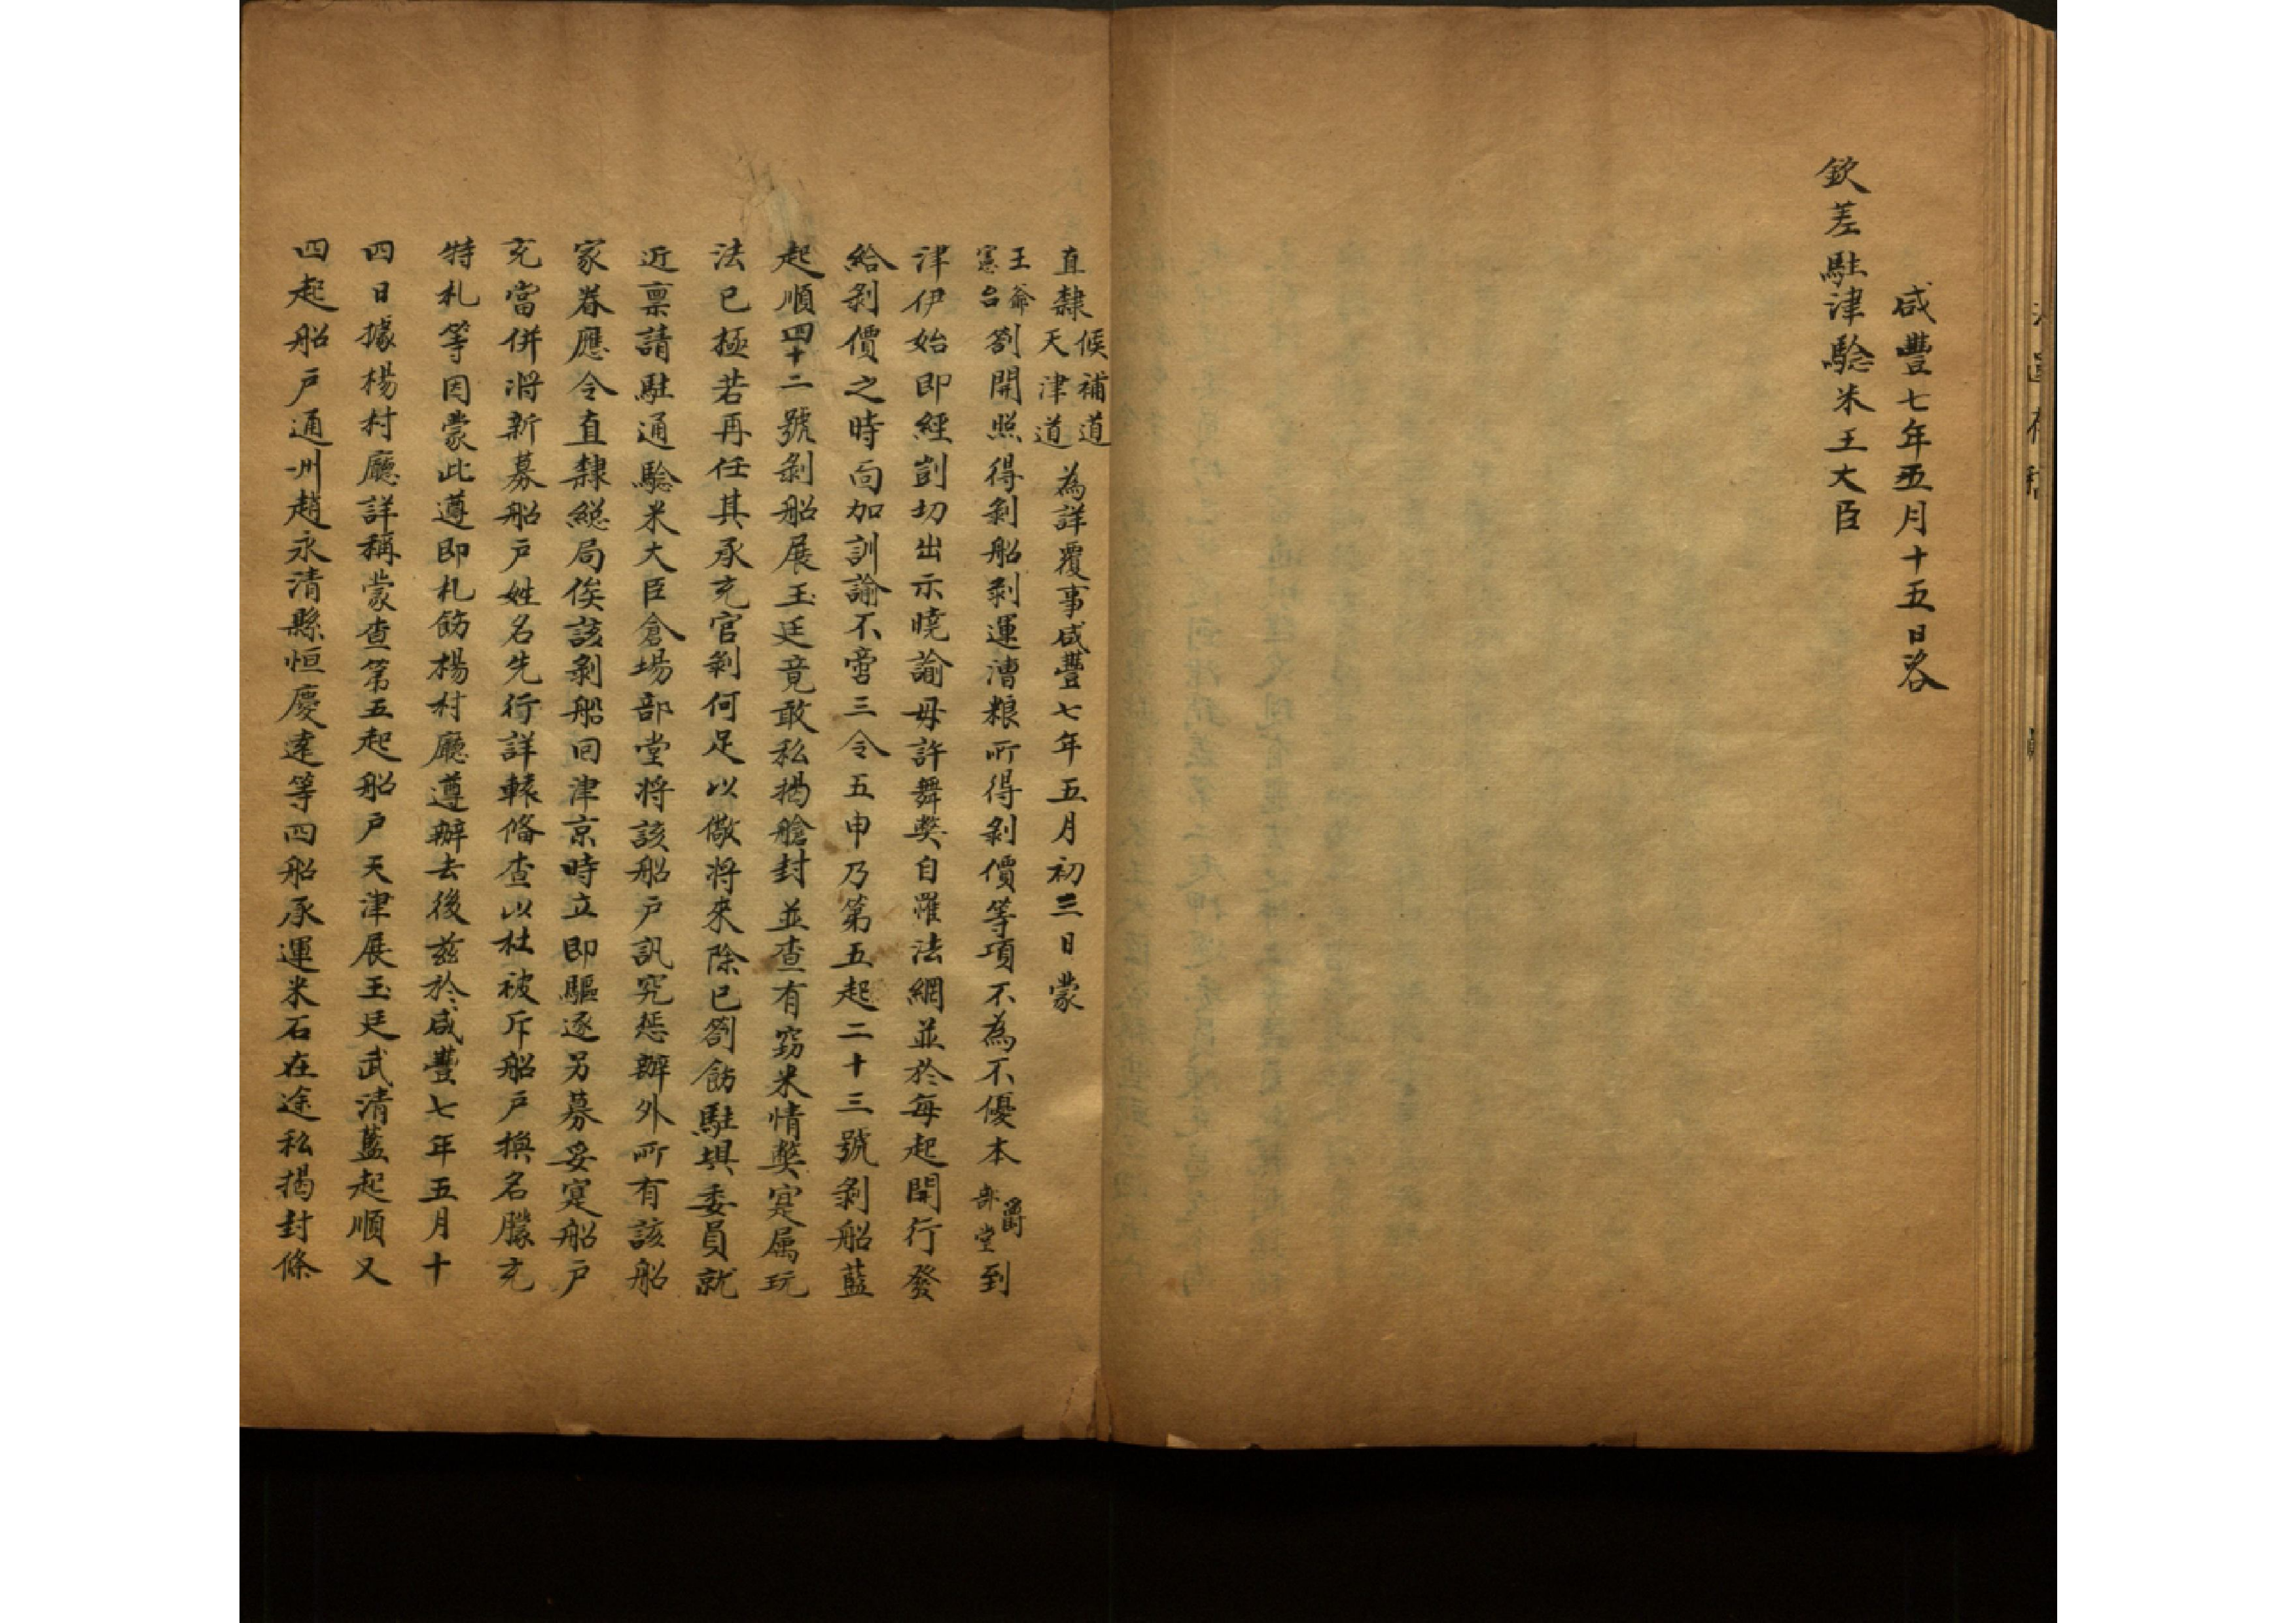 咸豐七年五月十五日咨
欽差駐津驗米王大臣
直隸候補道天津道為詳覆事咸豐七年五月初三日蒙
王爺憲台劄開照得剝船剝運漕粮所得剝價等項不為不優本爵部堂到
津伊始即經剴切出示曉諭毋許舞獘自罹法網並於每起開行發
給剝價之時面加訓諭不啻三令五申乃第五起二十三號剝船藍
起順四十二號剝船展玉廷竟敢私揭艙封並查有竊米情獘寔属玩
法已極若再任其承充官剝何足以儆將來除已劄飭駐垻委員就
近禀請駐通驗米大臣倉場部堂將該船戶訊究懲辦外所有該船
家眷應令直隸緫局俟該剝船回津京時立即驅逐另募妥寔船戶
充當併將新募船戶姓名先行詳轅備查以杜被斥船戶換名朦充
特札等因蒙此遵即札飭楊村廳遵辦去後兹於咸豐七年五月十
四日據楊村廳詳稱蒙查第五起船戶天津展玉廷武清藍起順又
四起船戶通州趙永清縣恒慶達等四船承運米石在途私揭封條